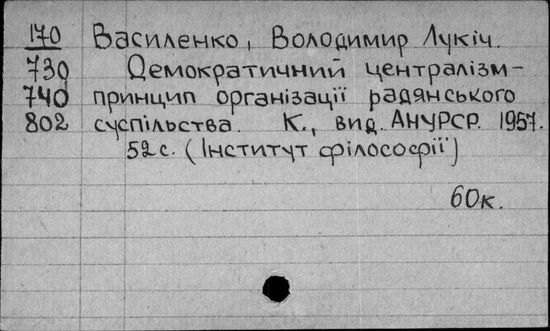 170 Василенко, Володимир Лукіч.
730 Демократичний централізм-
740 принцип організації радянського
802 суспільства. К., вид. АНУРСР. 1957.
52 с. (Інститут філософії)
60к.